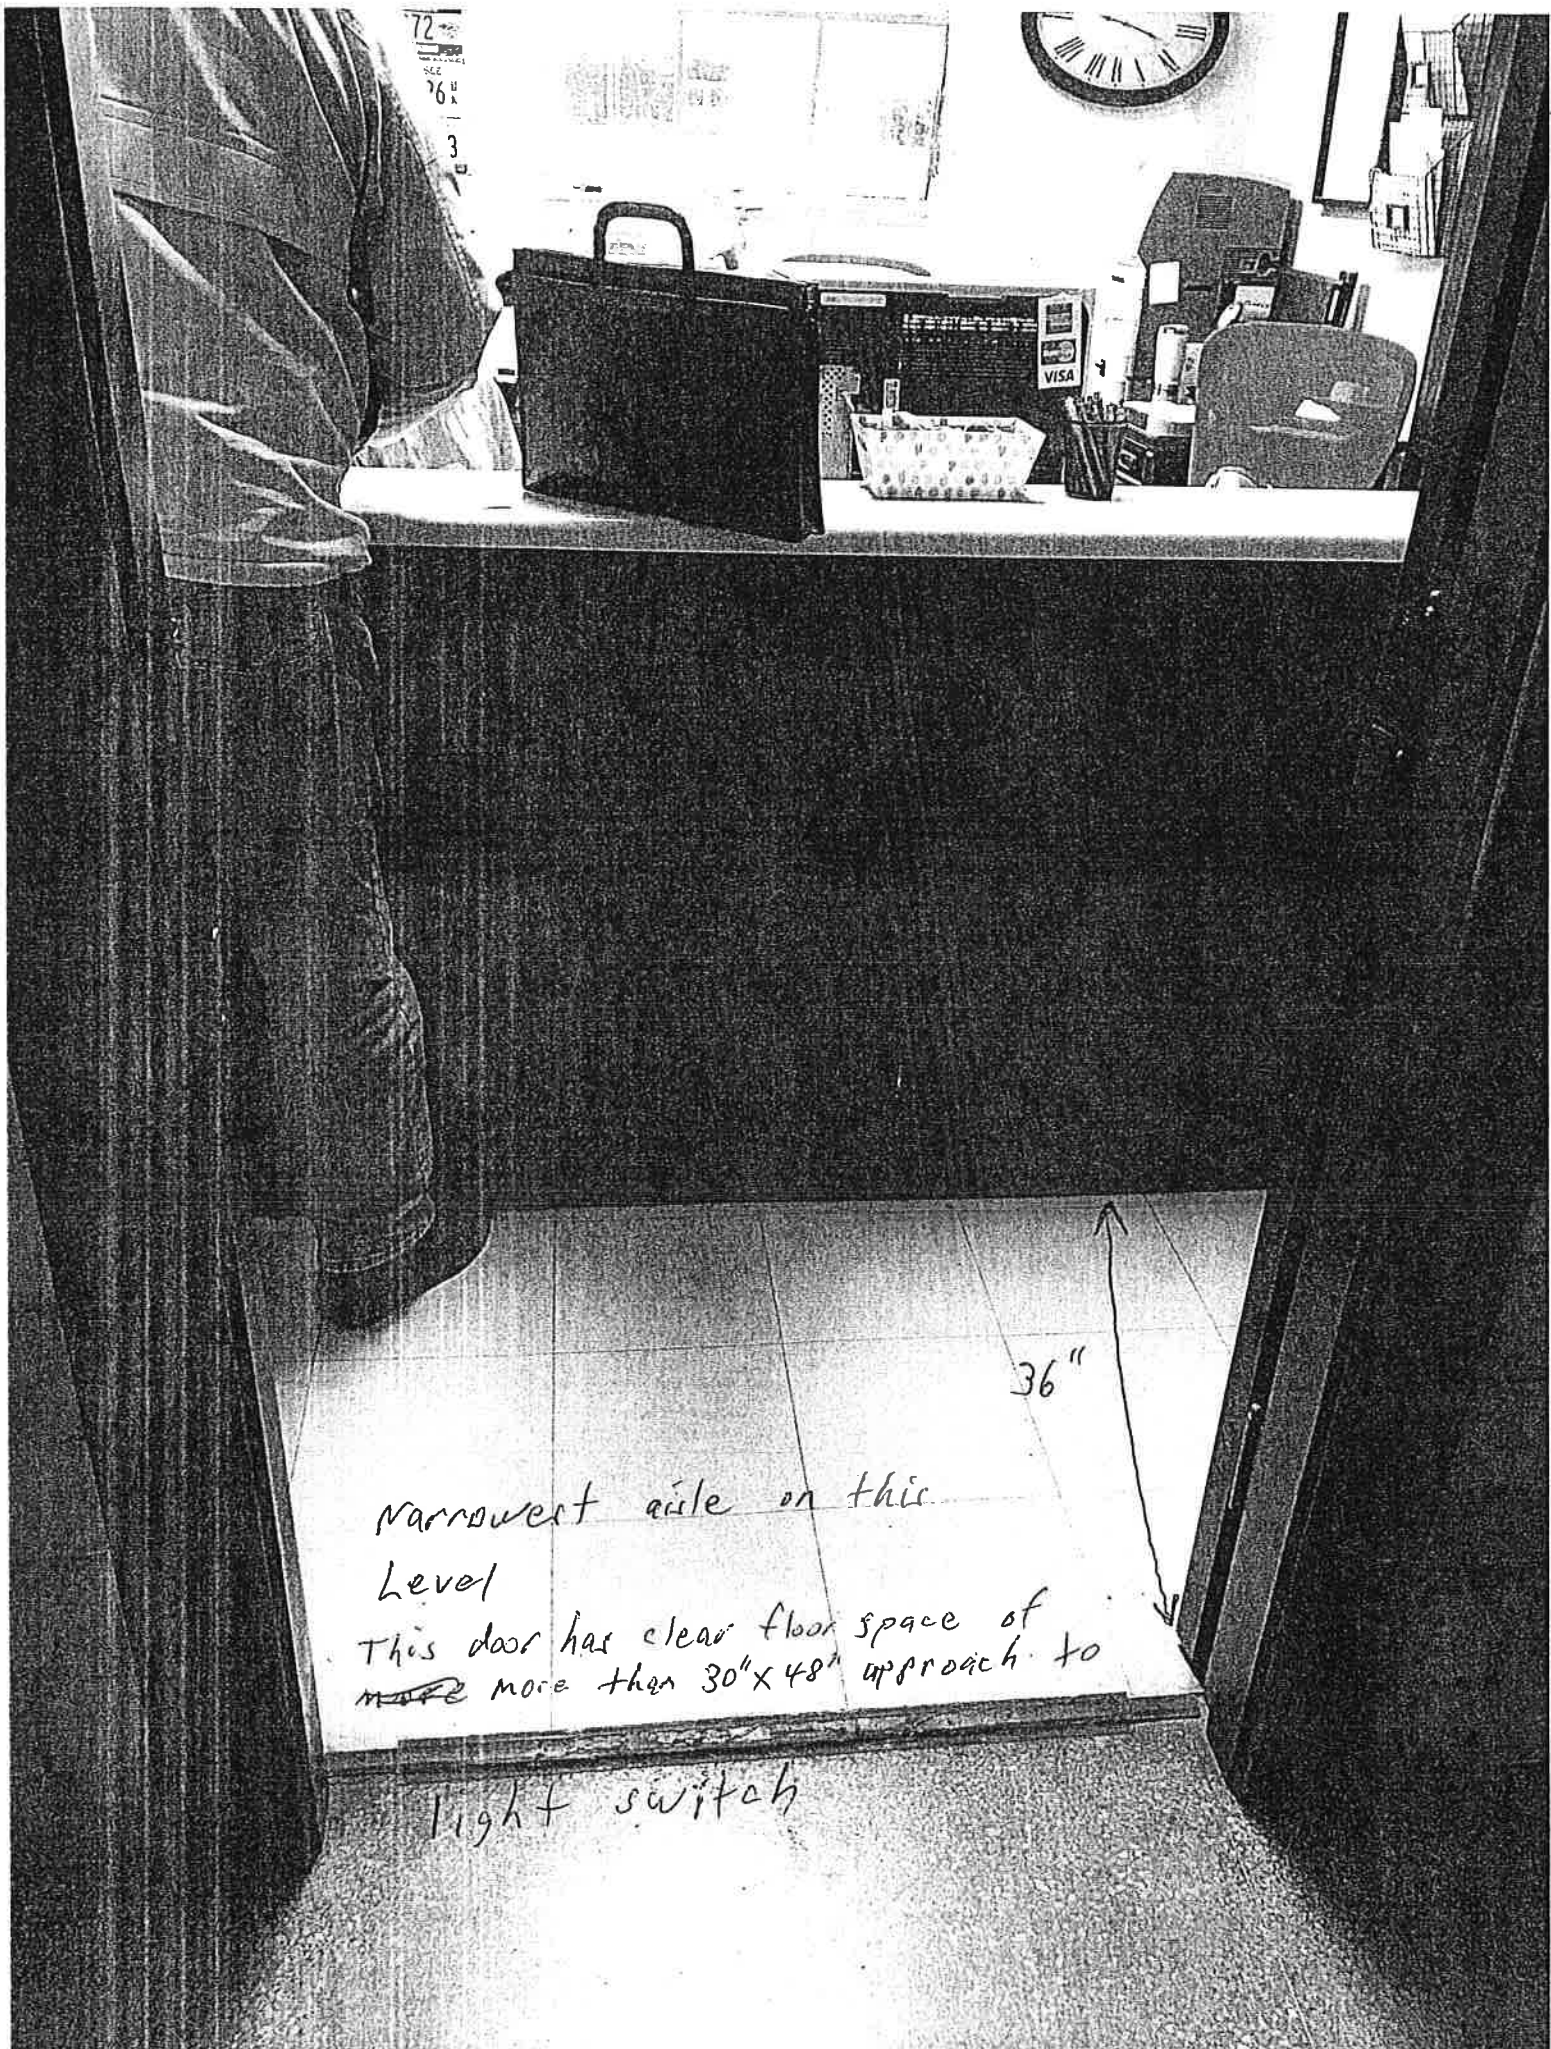 72
SEE
76
3
VISA
36"
Narrowest aisle on this
Level
This door has clear floor space of
more more than 30"X 48" approach to
light switch